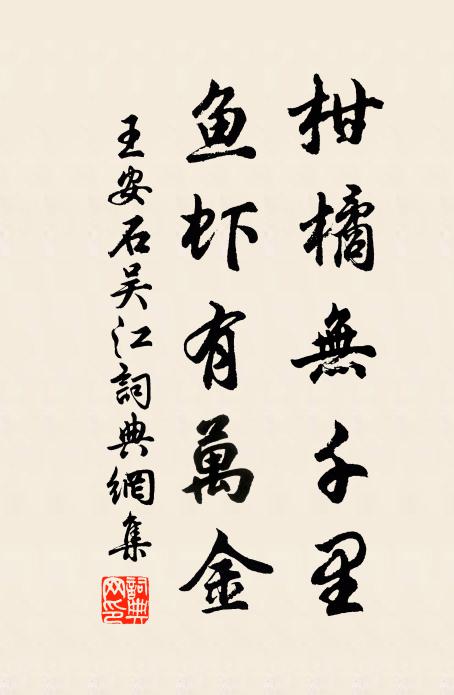 柑橘無千里
鱼虾有萬金
王安石吴江詞典網集
詞典网印